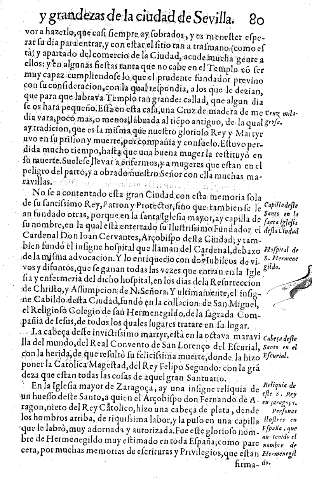 y grandezas de la ciudad de Sevilla. 80
vor a hazerlo, que casi siempre ay sobrados, y es menester espe-
rar su dia para entrar, y con estar el sitio tan a trasmano (como es
tà) y apartado del comercio de la Ciudad, acude mucha gente a
ellos; y en algunas fiestas tanta que no cabe en el Templo cō ser
muy capaz cumpliendose lo que el prudente fundador previno
con su consideracion, con la qual respondia, a los que le dezian,
que para que labrava Templo tan grande? callad, que algun dia
se os harà pequeño. Està en esta casa, una Cruz de madera de me
dia vara, poco mas, o menos, labrada al tiēpo antiguo, de la qual
ay tradicion, que es la misma que nuestro glorioso Rey y Martyr
tuvo en su prision y muerte, por compañia y consuelo. Estuvo per-
dida mucho tiempo, hasta que una buena muger la restituyò en
su muerte. Suelese llevar a enfermos, y a mugeres que estan en el
peligro del parto, y a obrado nuestro Señor con ella muchas ma-
ravillas.
Cruz mila-
grosa.
No se a contentado esta gran Ciudad con esta memoria sola
de su santissimo Rey, Patron y Protector, sino que tambien se le
an fundado otras, porque en la santa Iglesia mayor, ay capilla de
su nombre, en la qual està enterrado su Ilustrissimo Fundador el
Cardenal Don Ioan Cervantes, Arçobispo desta Ciudad; y tam-
bien fundò el insigne hospital que llaman del Cardenal, debaxo
de la misma advocacion. Y lo enriqueciò con dos Iubileos de vi-
vos y difuntos, que se ganan todas las vezes que entran en la Igle
sia y enfermeria del dicho hospital, en los dias de la Resurreccion
de Christo, y Assumpcion de N. Señora. Y ultimamente, el insig-
ne Cabildo desta Ciudad, fundò en la collacion de San Miguel,
el Religioso Colegio de san Hermenegildo, de la sagrada Com-
pañia de Iesus, de todos los quales lugares tratarè en su lugar.
Capilla deste
Santo en la
santa Iglesia
desta Ciudad
Hospital de
S. Hermene
gildo.
La cabeça deste invictissimo martyr, està en la octava maravi
lla del mundo, del Real Convento de San Lorenço del Escurial,
con la herida, de que resultò su felicissima muerte, donde la hizo
poner la Catolica Magestad, del Rey Felipo Segundo: con la grā
deza que estan todas las cosas de aquel gran Santuario.
Cabeça deste
Santo en el
Escurial.
En la Iglesia mayor de Zaragoça, ay una insigne reliquia de
un huesso deste Santo, a quien el Arçobispo don Fernando de A-
ragon, nieto del Rey Catolico, hizo una cabeça de plata, desde
los hombros arriba, de riquissima labor, y la puso en una capilla
que le labrò, muy adornada y autorizada. Fue este glorioso nom-
bre de Hermenegildo muy estimado en toda España, como pare
cerà, por muchas memorias de escrituras y Privilegios, que estan
firma-
Reliquia de
este S. Rey
en çaragoça.
Personas
ilustres en
España, que
an tenido el
nombre de
Hermenegil
do.